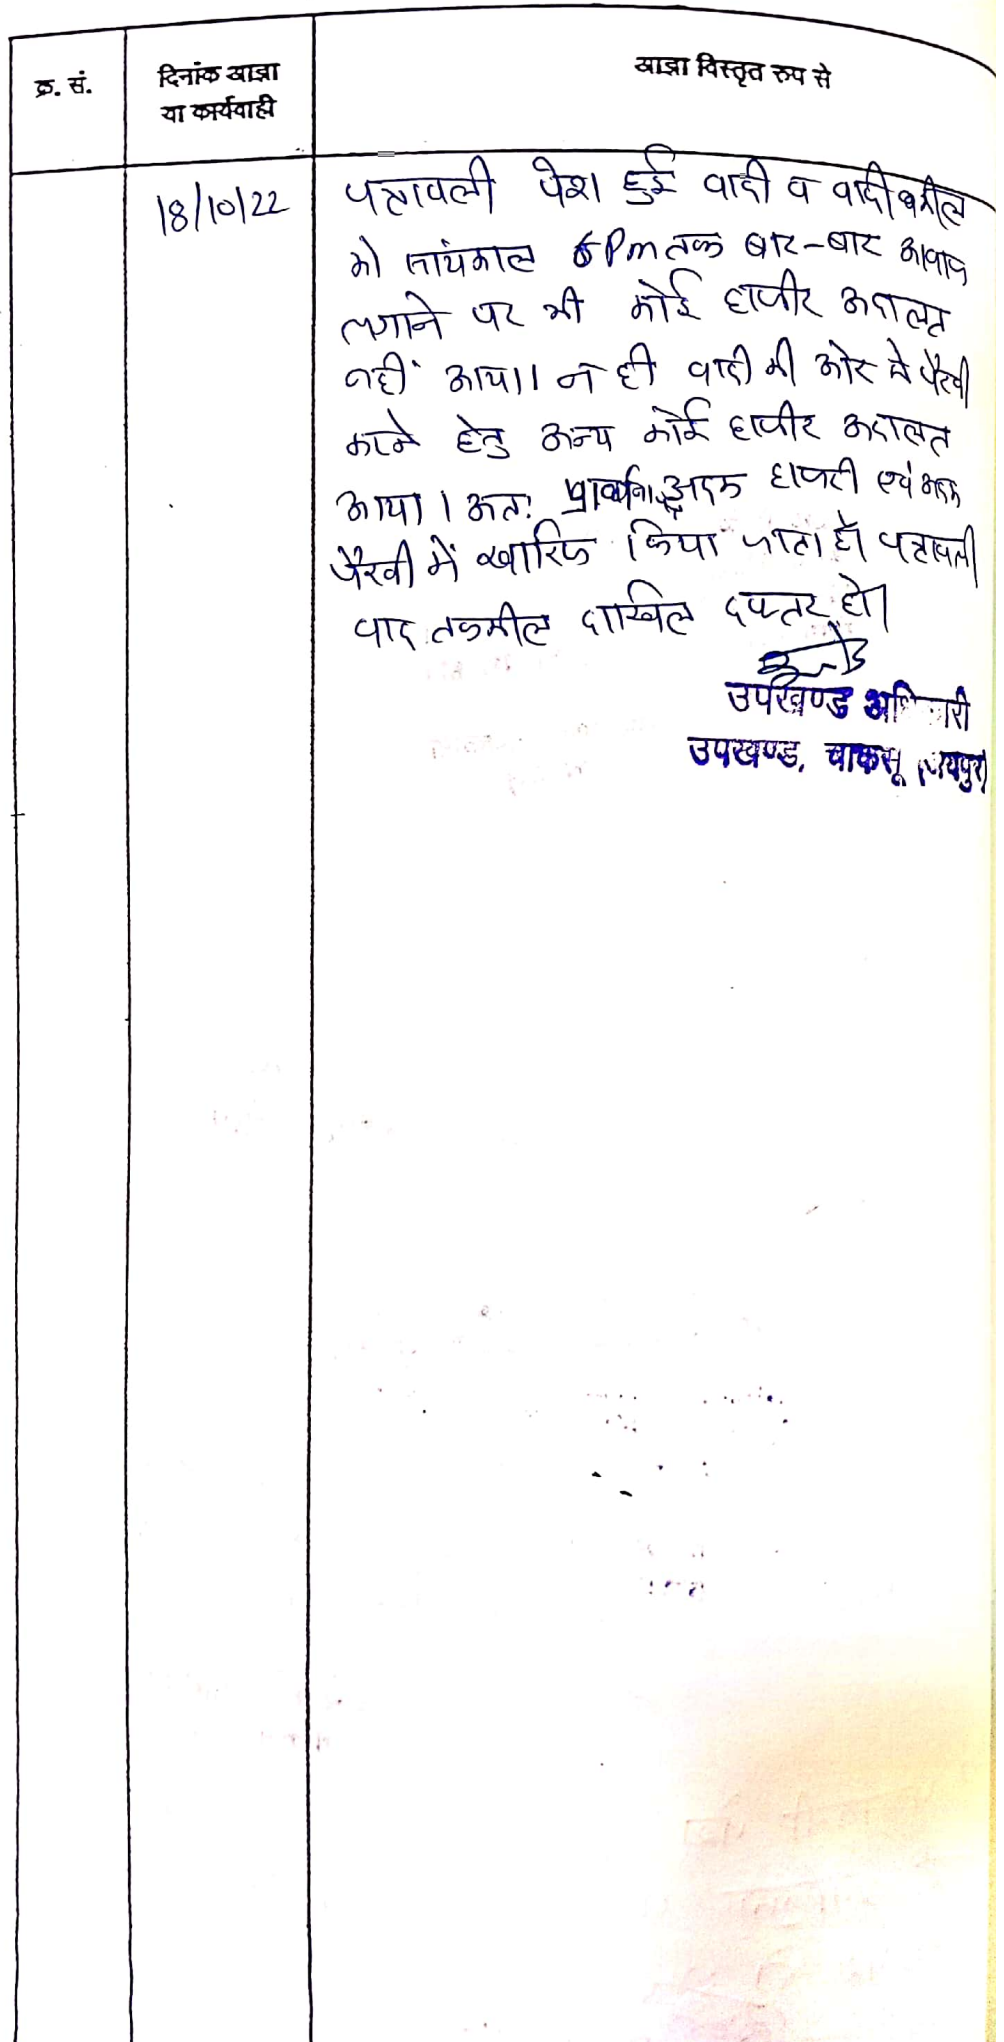 क्र. सं.
दिनांक आज्ञा
या कार्यवाही
आज्ञा विस्तृत रुप से
18/10/22
पत्रावली पेश हुई वादी व वादी वकील
को सांयकाल 6Pm तक बार-बार आवाज
लगाने पर भी कोई हाजीर अदालत
नहीं आया। न ही वादी की ओर से पैरवी
करने हेतु अन्य कोई हाजीर अदालत
आया। अतः अदम हाजरी एवं अदम
पैरवी में खारिज किया जाता है। पत्रावली
बाद तकमील दाखिल दफ्तर हो।
उपखण्ड अधिकारी
उपखण्ड, चाकसू (जयपुर)